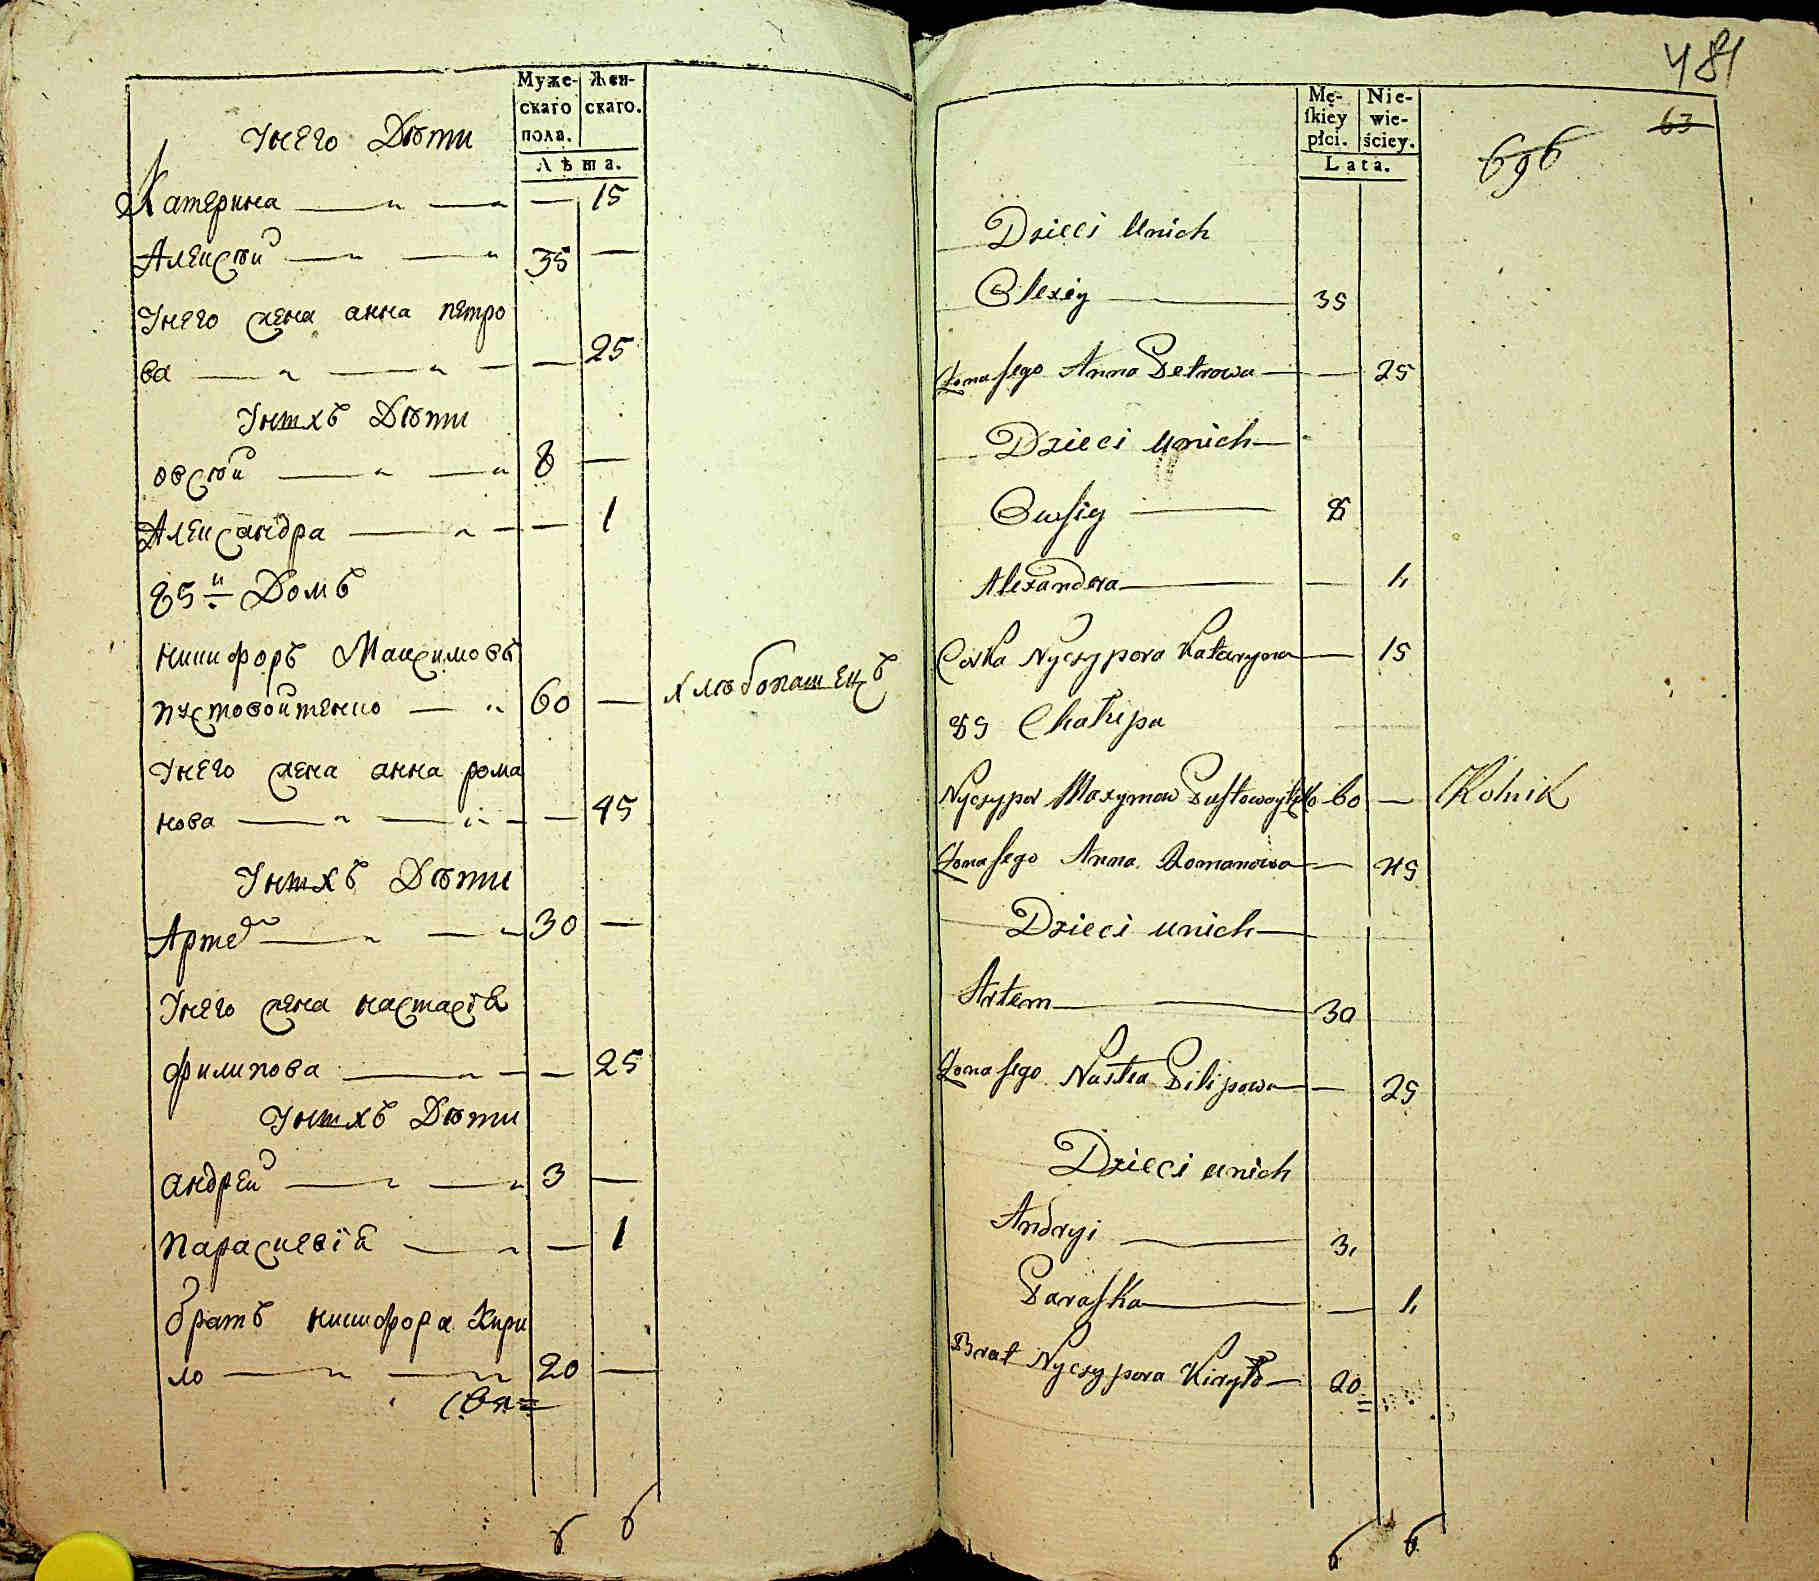 Муже-
скаго
пола.
Жен-
скаго.
Лѣта.
Унего Дѣти
Катерина — „ — — 15
Алексѣй — „ — „ 35 —
Унего жена анна петро
ва — „ — „ — — 25
Унихъ Дѣти
овсѣй — „ — „ 8 —
Александра — „ — — 1
85й Домъ
никифоръ Максимовъ
пустовойтенко — „ 60 — хлѣбопашецъ
Унего жена анна рома
нова — „ — „ — — 45
Унихъ Дѣти
Артем — „ — „ 30 —
Унего жена настасія
филипова — „ — — 25
Унихъ Дѣти
андрей — „ — „ 3 —
параскевія — „ — 1
братъ никифора Кири
ло — „ — „ 20 —
6 6
481
63
696
Mę-
ſkiey
płci.
Nie-
wie-
ściey.
Lata.
Dzieci Unich
Olexiy — 35
Żona Jego Anna Petrowa — — 25
Dzieci unich —
Owsiy — 8
Alexandra — — 1,
Corka Nyczypora Kataryna — 15
85 Chałupa
Nyczypor Maxymow Pustowoytenko 60 — Rolnik
Żona Jego Anna Romanowa — 45
Dzieci unich —
Artem — — 30
Żona Jego Nastia Pilipowa — 25
Dzieci unich
Andryi — 3,
Paraska — — 1,
Brat Nyczypora Kiryło — 20
6 6